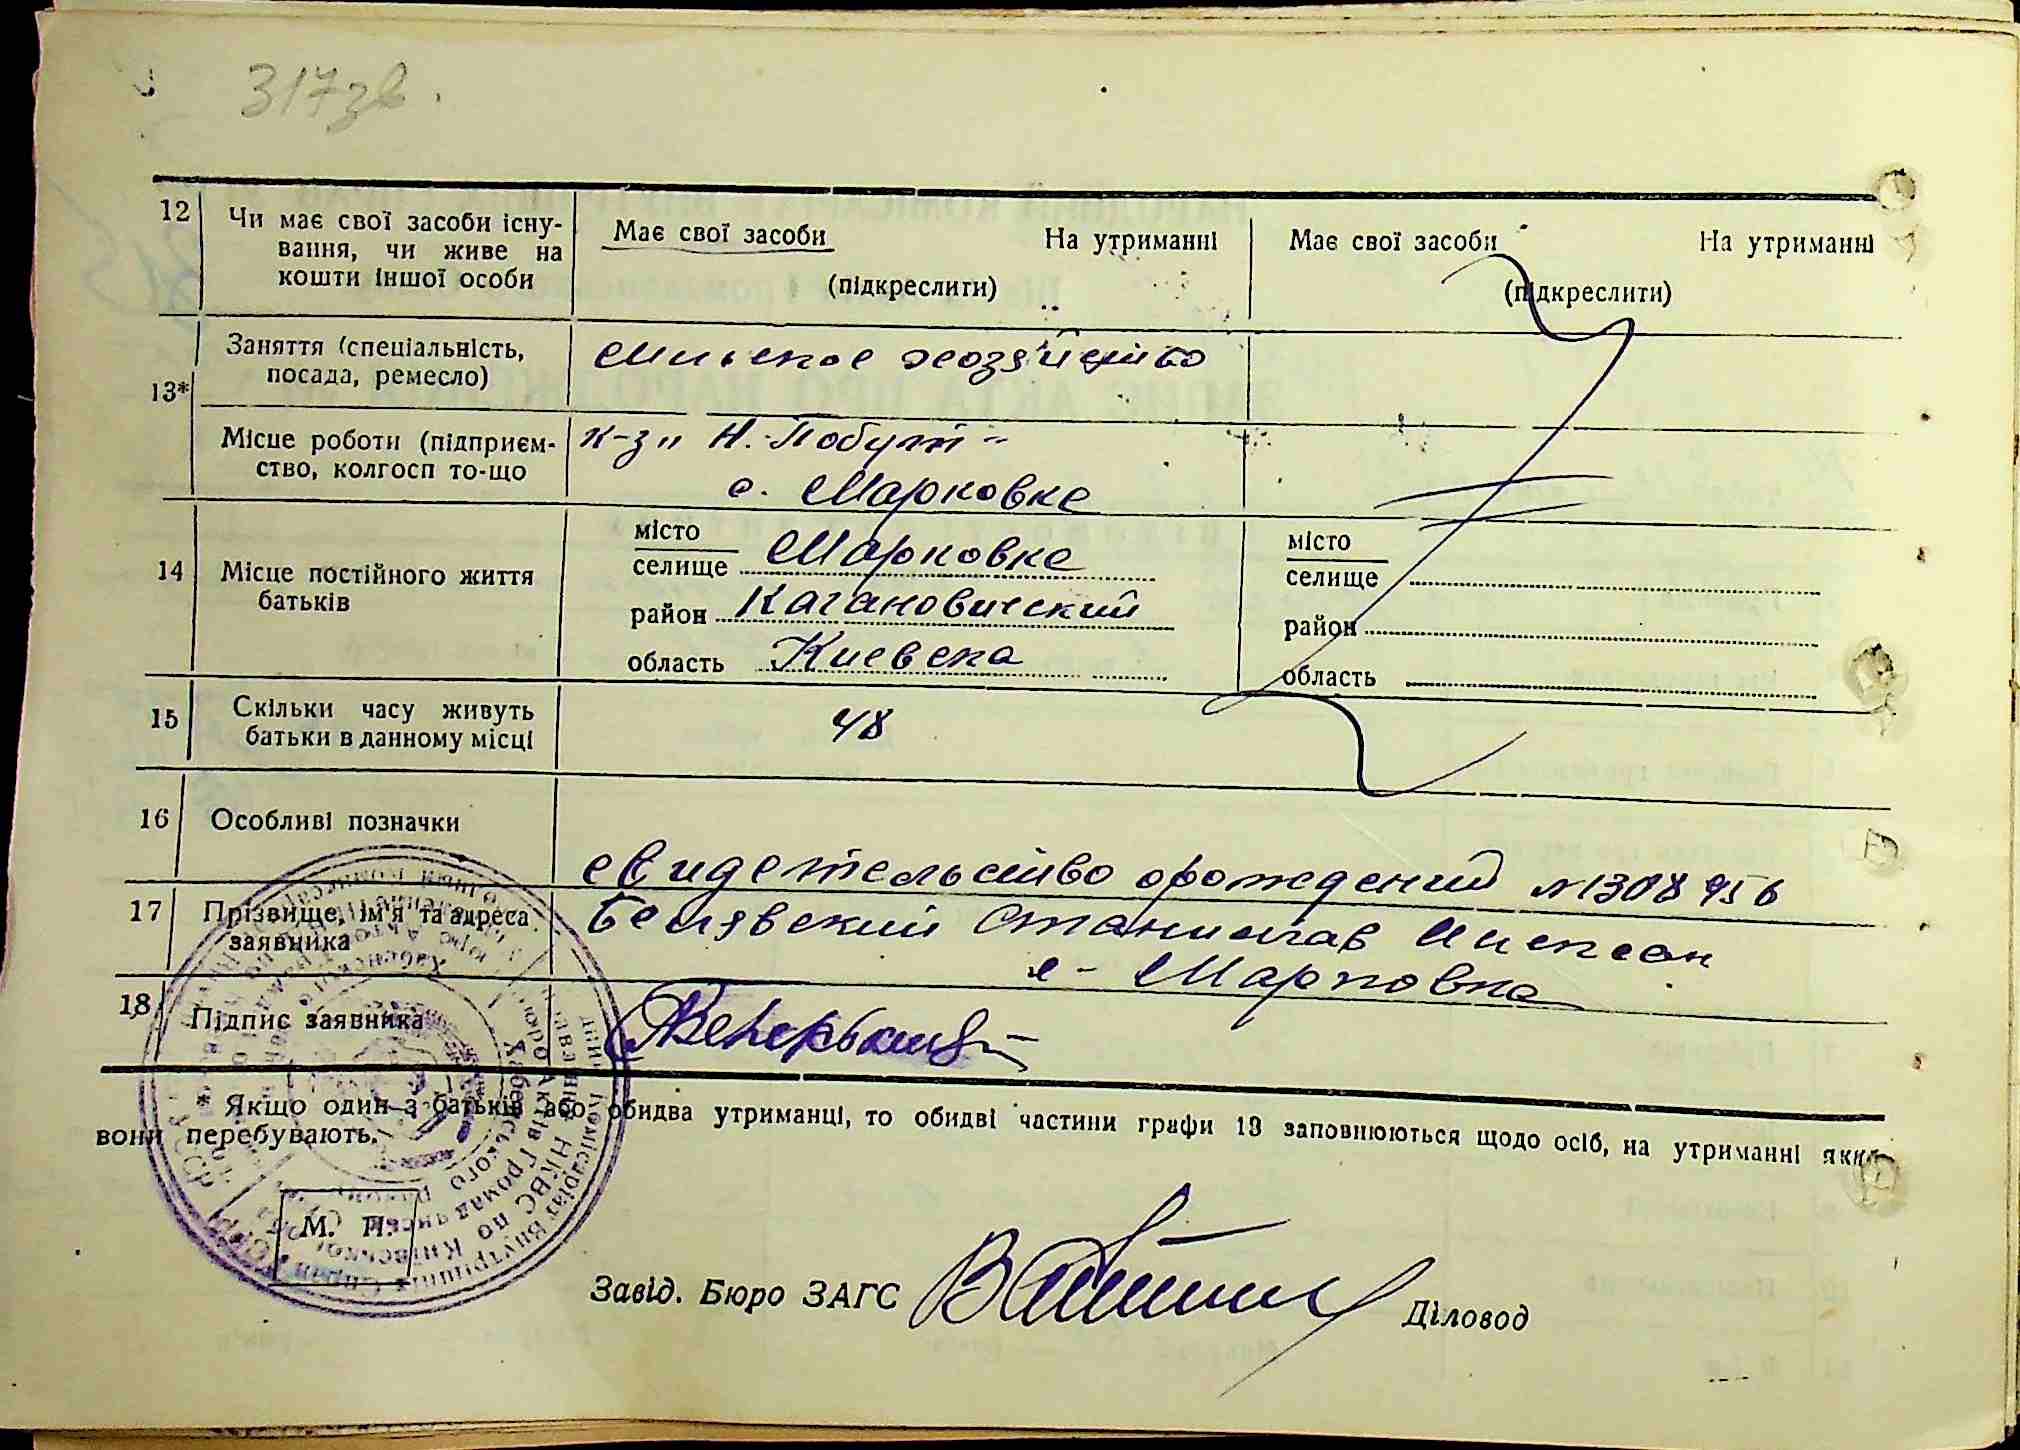 317зв.
12 Чи має свої засоби існу-
вання, чи живе на
кошти іншої особи
Має свої засоби На утриманні
(підкреслити)
Має свої засоби На утриманні
(підкреслити)
13*
Заняття (спеціальність,
посада, ремесло)
хозяйство
Місце роботи (підприєм-
ство, колгосп то-що
к-з „Н.-Побут“
с. Марковке
14 Місце постійного життя
батьків
місто
селище Марковке
район Кагановический
область Киевска
місто
селище
район
область
15 Скільки часу живуть
батьки в данному місці
48
16 Особливі позначки
свидетельство орождений №
17 Прізвище, ім'я та адреса
заявника
Белявский Станислав
Марковка
18 Підпис заявника
* Якщо один з батьків або обидва утриманці, то обидві частини графи 13 заповнюються щодо осіб, на утриманні яких
вони перебувають.
М. П.
Завід. Бюро ЗАГС
Діловод